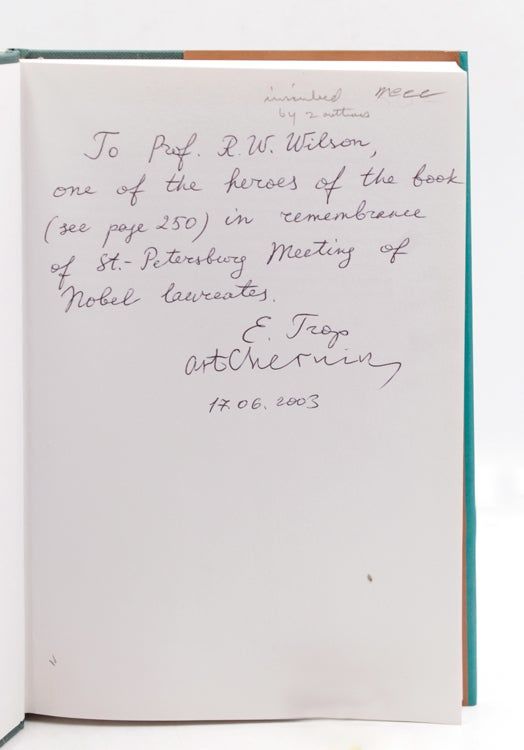 inscribed mecc
by 2 authors
To Prof. R. W. Wilson,
one of the heroes of the book
(see page 250) in remembrance
of St.-Petersburg Meeting of
Nobel laureates.
E. Trop
art Chernin
17.06.2003